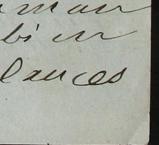 man
bien
lances